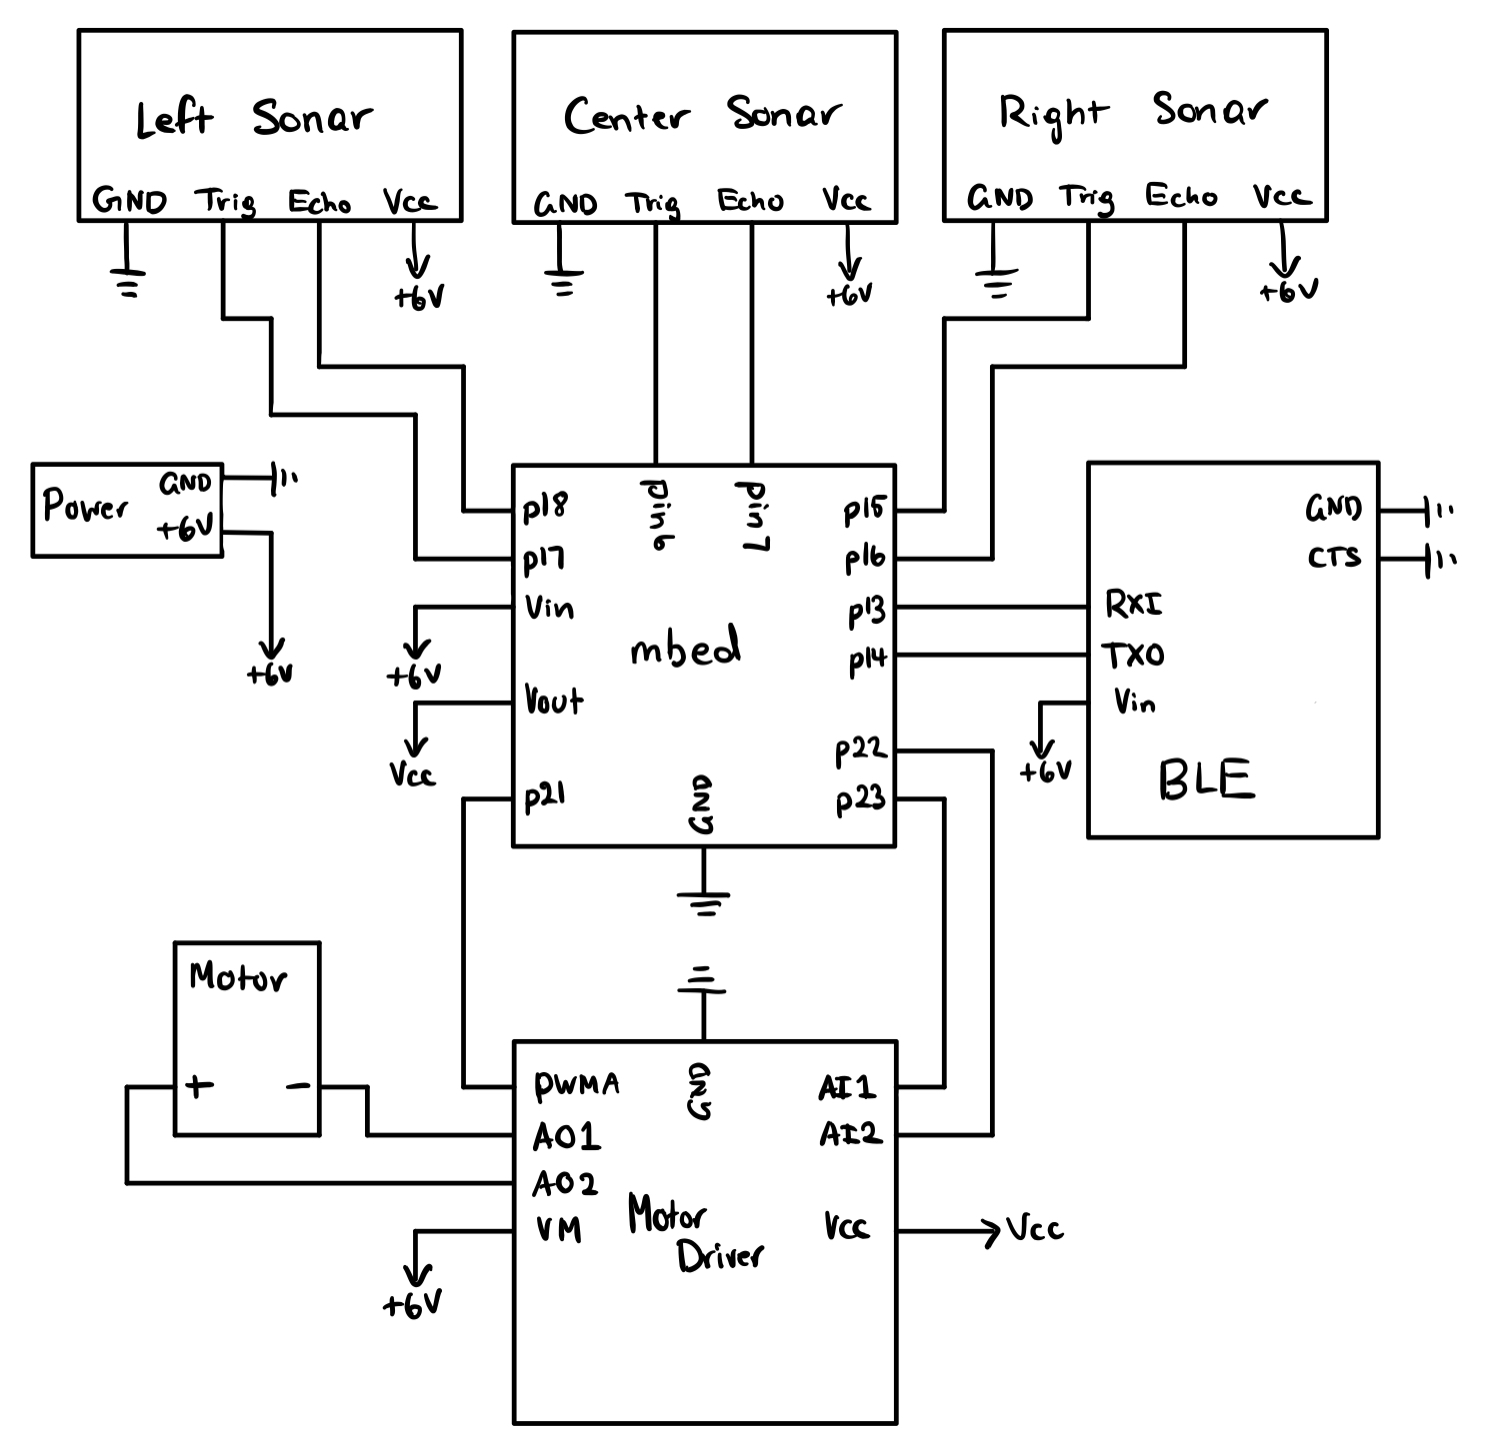 Left Sonar
GND Trig Echo Vcc
+6V
Center Sonar
GND Trig Echo Vcc
+6V
Right Sonar
GND Trig Echo Vcc
+6V
Power
GND
+6V
+6V
p18
p17
Vin
+6V
Vout
Vcc
p21
pin6
pin7
mbed
GND
p15
p16
p13
p14
p22
p23
GND
CTS
RXI
TXO
Vin
+6V
BLE
Motor
+ -
PWMA
AO1
AO2
VM
+6V
GND
Motor
Driver
AI1
AI2
Vcc
Vcc